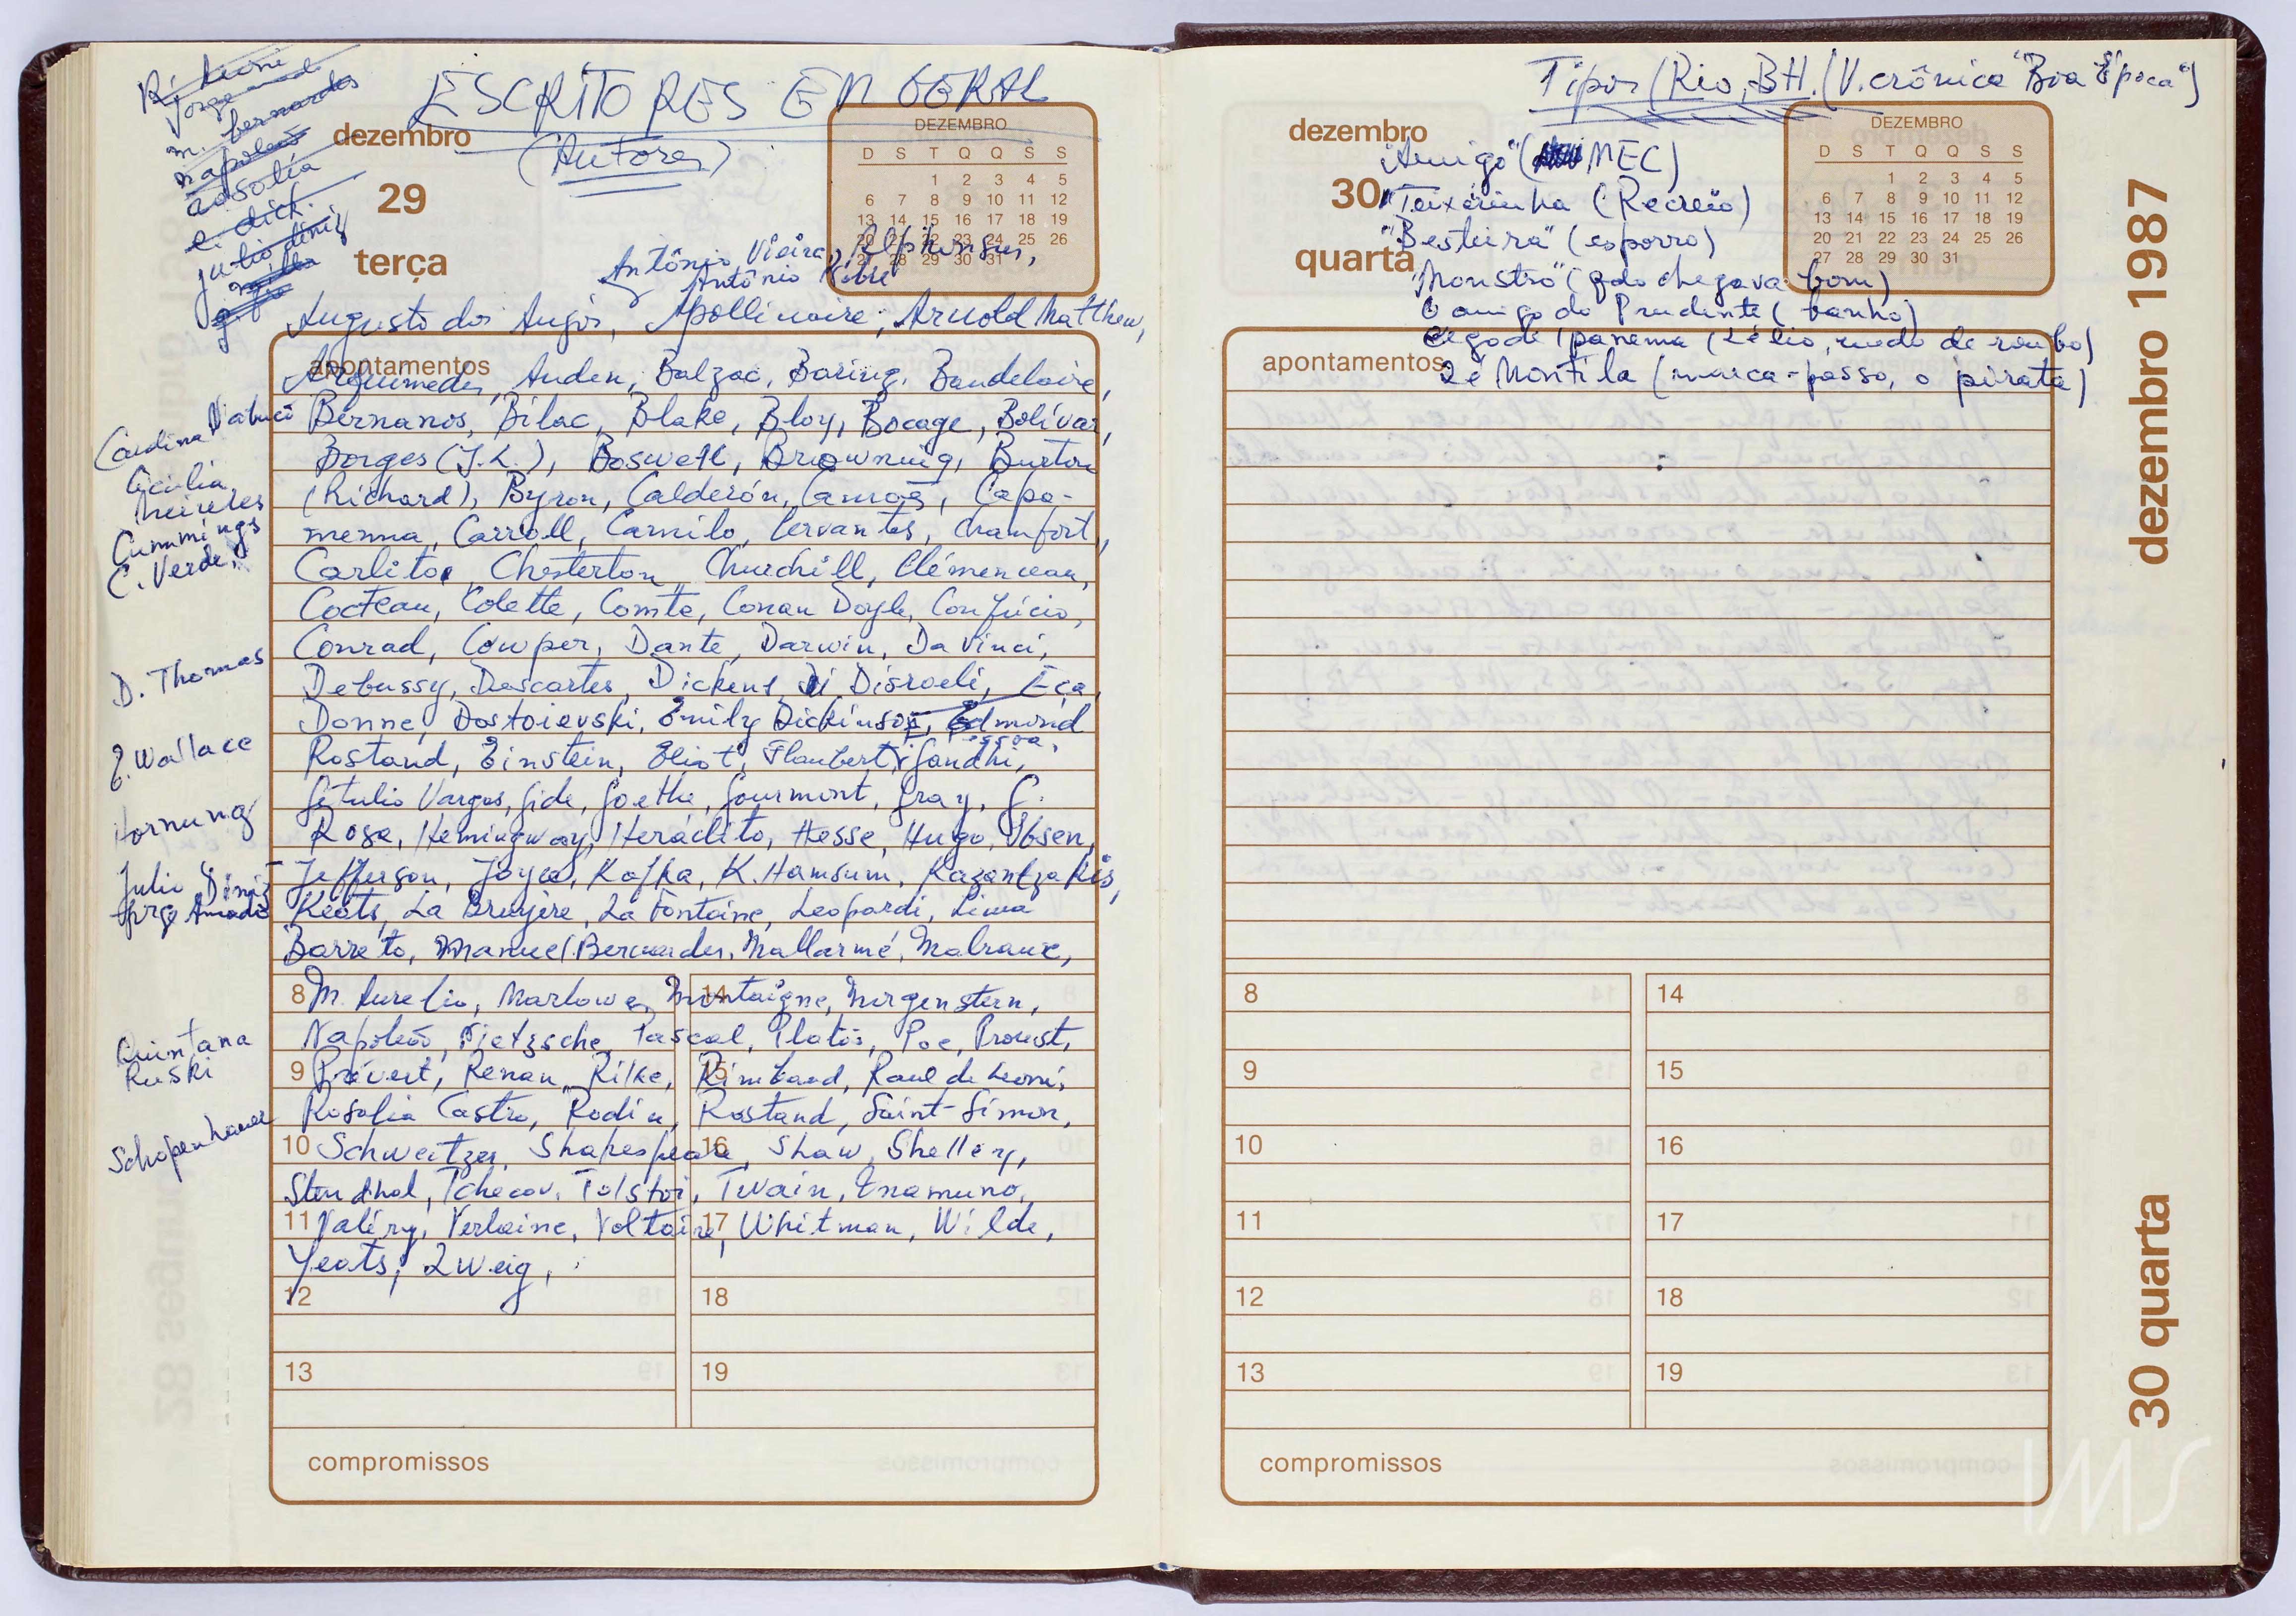 Jorge amado
m. bernardes
napoleão
e. dick.
julio diniz
ESCRITORES EM GERAL
(Autores)
dezembro
29
terça
DEZEMBRO
D S T Q Q S S
1 2 3 4 5
6 7 8 9 10 11 12
13 14 15 16 17 18 19
20 21 22 23 24 25 26
27 28 29 30 31
Antônio Vieira, Alphonsus,
Antônio
Augusto dos Anjos, Apollinaire, Arnold Matthew,
apontamentos
Arquimedes, Auden, Balzac, Baring, Baudelaire,
Carolina Nabuco
Bernanos, Bilac, Blake, Bloy, Bocage, Bolívar,
Borges (J.L.), Boswell, Browning, Burton
Cecilia
Meireles
(Richard), Byron, Calderón, Camões, Capa-
Cummings
nema, Carroll, Camilo, Cervantes, Chamfort,
C. Verde,
Carlitos, Chesterton, Churchill, Clémenceau,
Cocteau, Colette, Comte, Conan Doyle, Confúcio,
Conrad, Cowper, Dante, Darwin, Da Vinci,
D. Thomas
Debussy, Descartes, Dickens, Disraeli, Eça,
Donne, Dostoievski, Emily Dickinson, Edmond
E. Wallace
Rostand, Einstein, Eliot, Flaubert, F. Pessoa, Gandhi,
Getulio Vargas, Gide, Goethe, Gourmont, Gray, G.
Hornung
Rosa, Hemingway, Heráclito, Hesse, Hugo, Ibsen,
Julio Diniz
Jefferson, Joyce, Kafka, K. Hamsum, Kazantzakis,
Jorge Amado
Keats, La Bruyère, La Fontaine, Leopardi, Lima
Barreto, Manuel Bernardes, Mallarmé, Malraux,
8 M. Aurelio, Marlowe, Montaigne, Morgenstern, 14
Napoleão, Nietzsche, Pascal, Platão, Poe, Proust,
Quintana
Ruski
9 Prévert, Renan, Rilke, Rimbaud, Raul de Leoni, 15
Rosalia Castro, Rodin, Rostand, Saint-Simon,
Schopenhauer
10 Schweitzer, Shakespeare, Shaw, Shelley, 16
Stendhal, Tchecov, Tolstoi, Twain, Unamuno,
11 Valéry, Verlaine, Voltaire, Whitman, Wilde, 17
Yeats, Zweig,
12 18
13 19
compromissos
Tipos (Rio, BH. (V. crônica "Boa Época")
dezembro
30
quarta
DEZEMBRO
D S T Q Q S S
1 2 3 4 5
6 7 8 9 10 11 12
13 14 15 16 17 18 19
20 21 22 23 24 25 26
27 28 29 30 31
"Amigo" (MEC)
"Teixeirinha (Recreio)
"Besteira" (esporro)
"Monstro" (qdo chegava bom)
O amigo do Prudente (banho)
Cego de Ipanema (Lélio, medo de roubo)
apontamentos
Zé Montila (marca-passo, o pirata)
8 14
9 15
10 16
11 17
12 18
13 19
compromissos
dezembro 1987
30 quarta
IMS